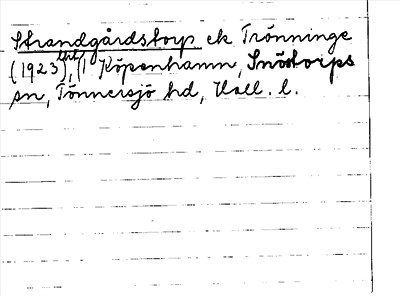 Strandgårdstorp ek Trönninge
(1923), 1 Köpenhamn, Snöstorps
sn, Tönnersjö hd, Hall. l.